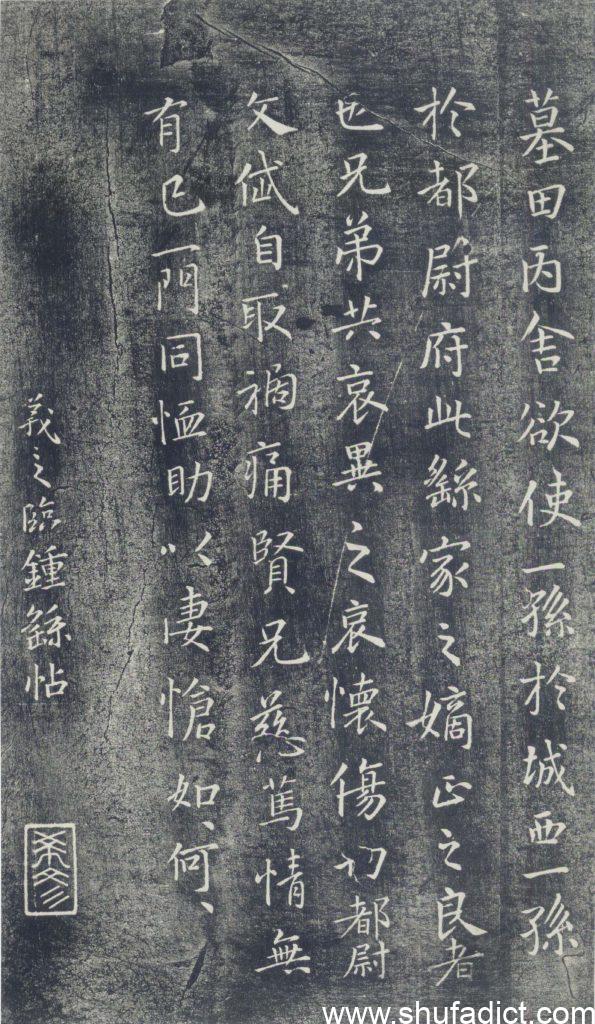 墓田丙舍欲使一孫於城西一孫
於都尉府此繇家之嫡正之良者
也兄弟共哀異之哀懷傷切都尉
文岱自取禍痛賢兄慈篤情無
有已一門同恤助以悽愴如、何、
羲之臨鍾繇帖
www.shufadict.com